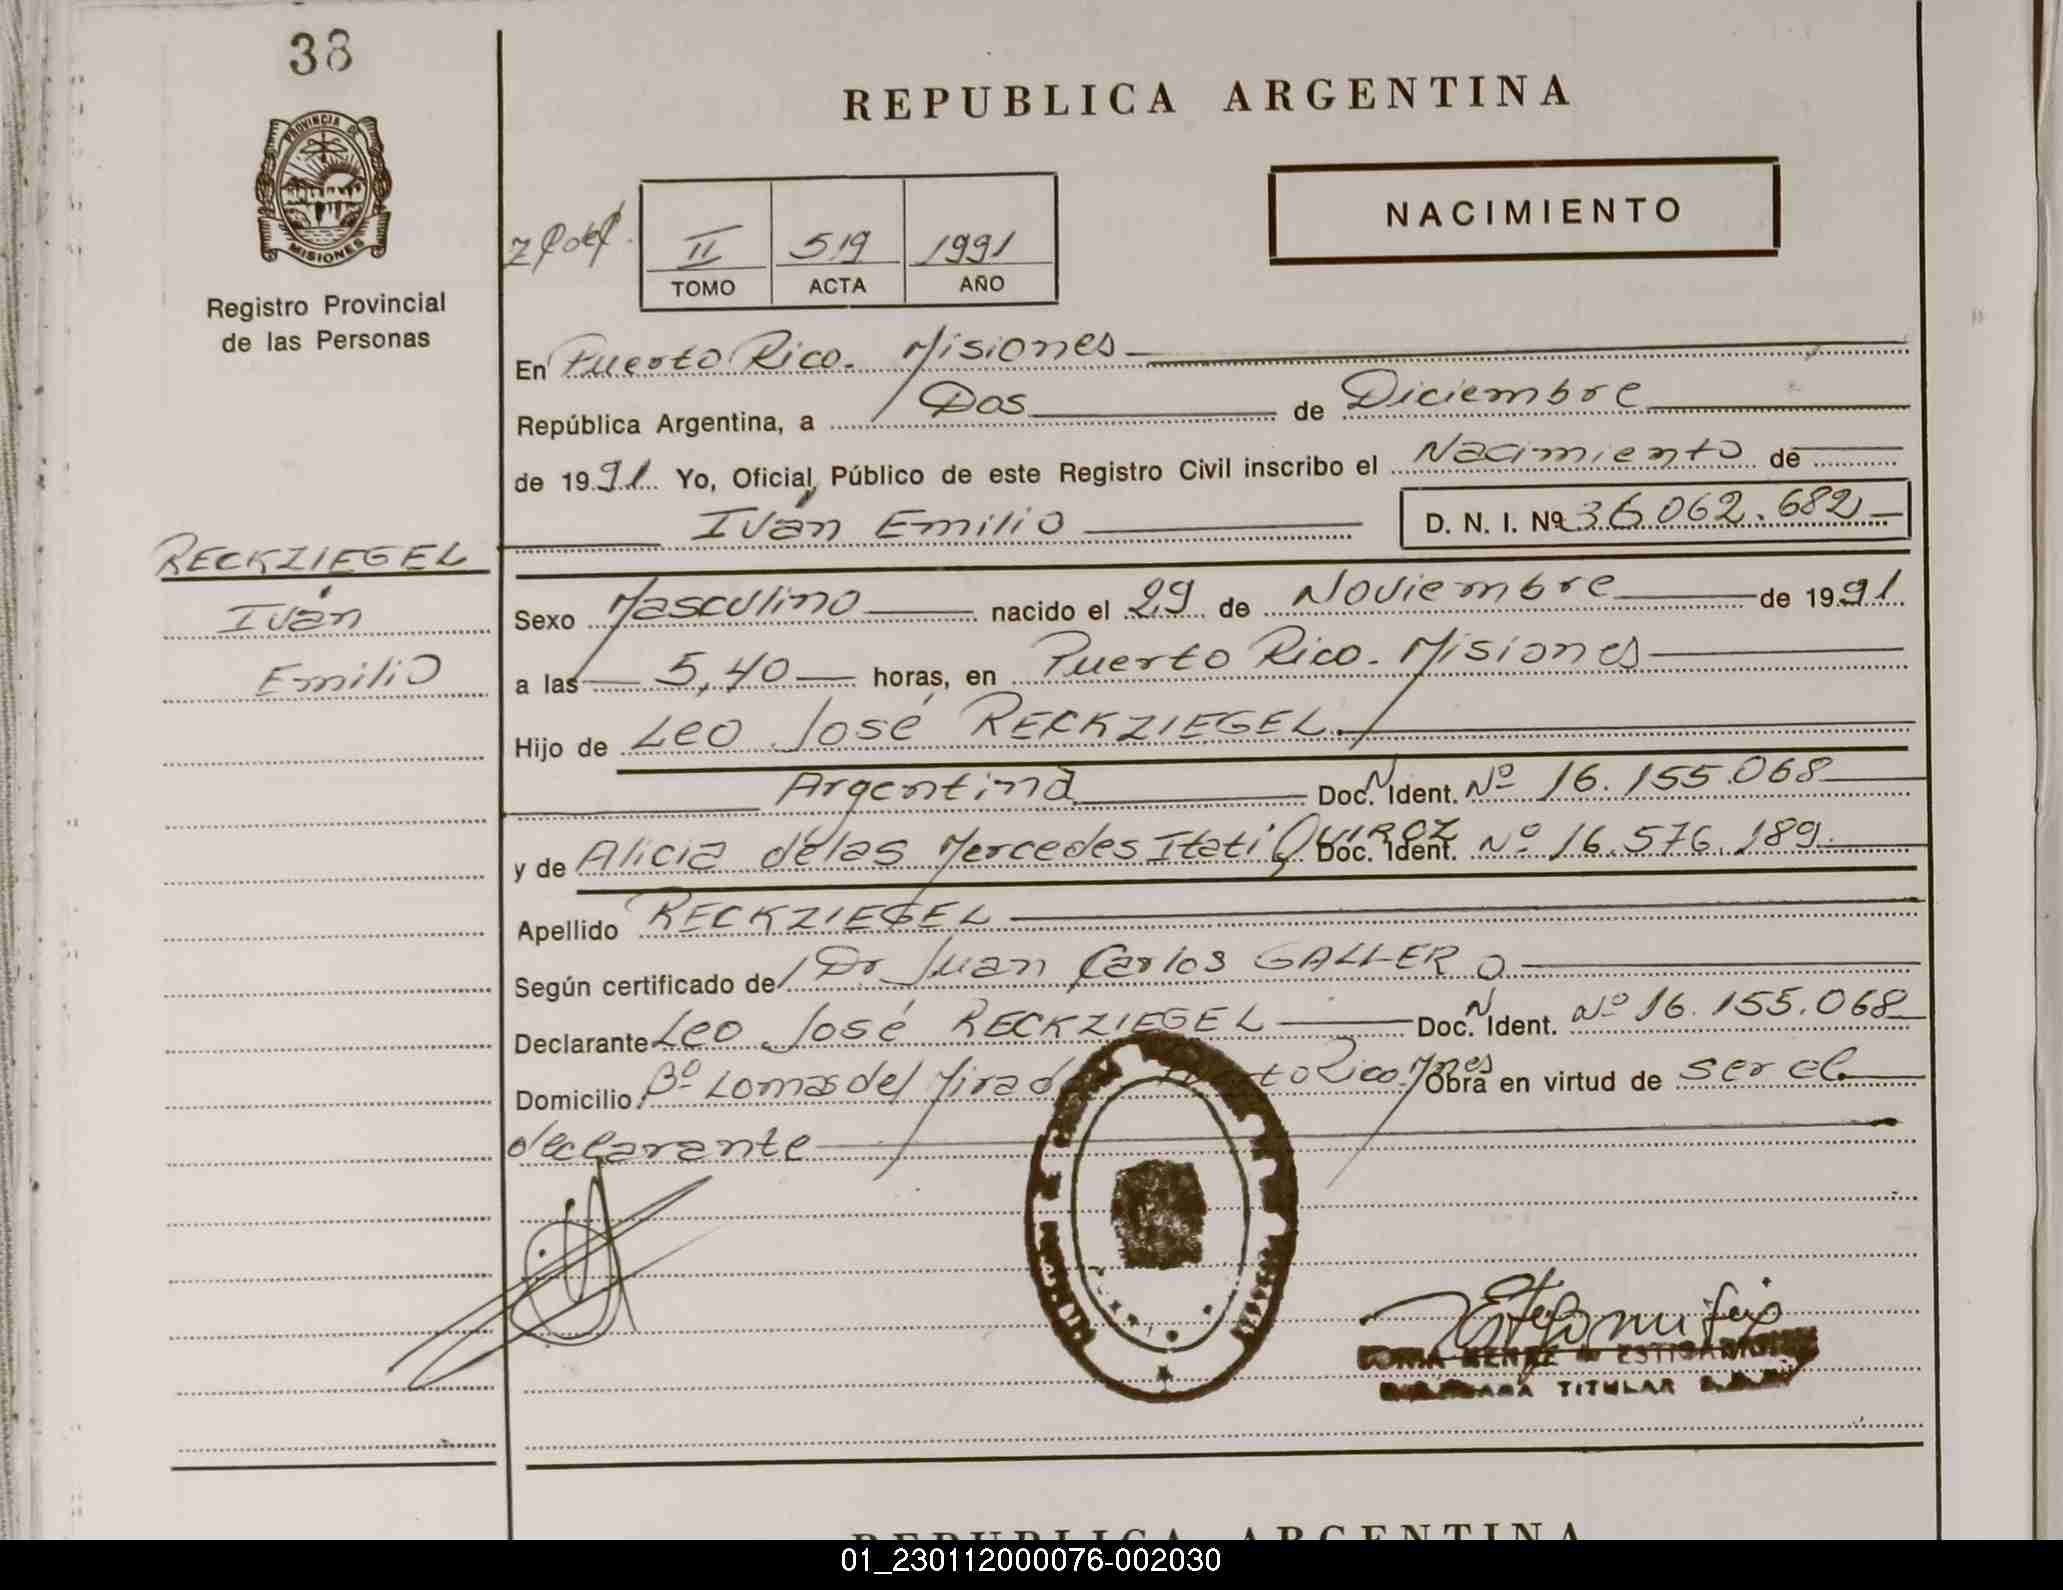 38
REPUBLICA ARGENTINA
PROVINCIA DE
MISIONES
Registro Provincial
de las Personas
II 519 1991
TOMO ACTA AÑO
NACIMIENTO
En Puerto Rico. Misiones
República Argentina, a Dos de Diciembre
de 1991. Yo, Oficial Público de este Registro Civil inscribo el Nacimiento de
Iván Emilio D. N. I. Nº 36.062.682
RECKZIEGEL
Iván
Emilio
Sexo Masculino nacido el 29 de Noviembre de 1991.
a las 5,40 horas, en Puerto Rico. Misiones
Hijo de Leo José RECKZIEGEL
Argentina Doc. N Ident. Nº 16.155.068
y de Alicia de las Mercedes Itati QUIROZ Doc. Ident. Nº 16.576.189.
Apellido RECKZIEGEL
Según certificado de Dr Juan Carlos GALLERO
Declarante Leo José RECKZIEGEL Doc. N Ident. Nº 16.155.068
Domicilio Bº Lomas del Mirad Rico. Mnes Obra en virtud de ser el
declarante
TITULAR
REPUBLICA ARGENTINA
01_230112000076-002030